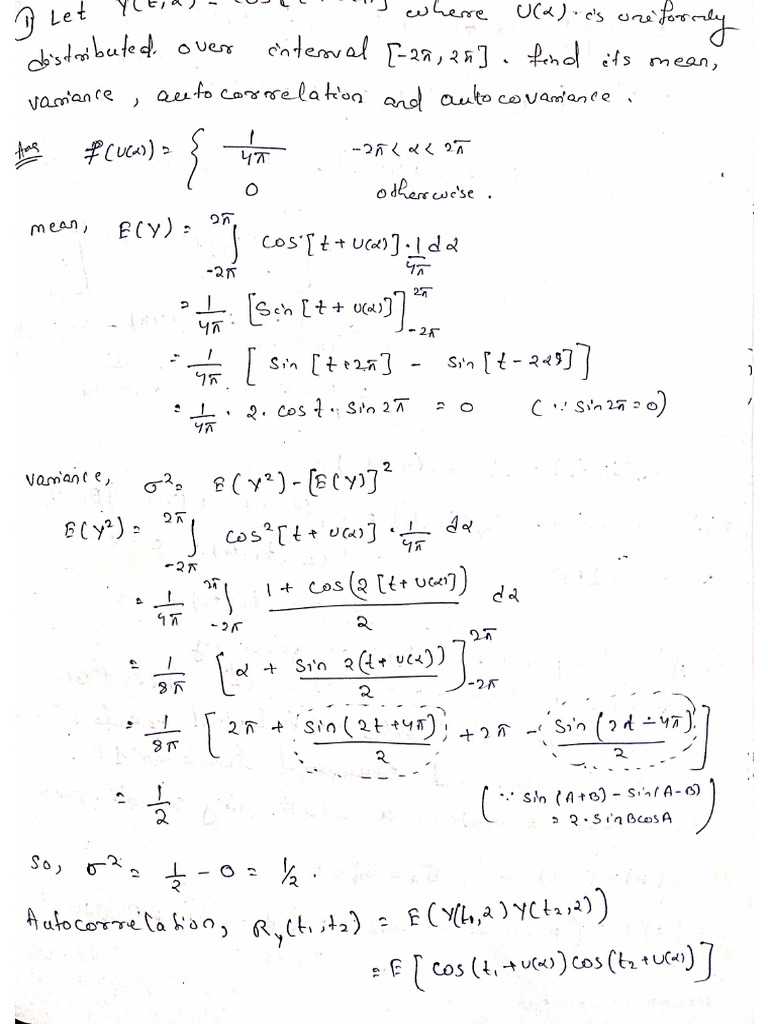 1) Let Y(t,α) = cos[ where U(α) is uniformly
distributed over interval [-2π, 2π]. find its mean,
variance, autocorrelation and autocovariance.
Ans f(U(α)) = { 1/4π -2π < α < 2π
0 otherwise.
mean, E(Y) = ∫_{-2π}^{2π} cos[t + U(α)] · 1/4π dα
= 1/4π [Sin [t + U(α)]]_{-2π}^{2π}
= 1/4π [ sin [t+2π] - sin [t - 2π]]
= 1/4π · 2 · cos t · sin 2π = 0 (∵ sin 2π = 0)
variance, σ² = E(Y²) - [E(Y)]²
E(Y²) = ∫_{-2π}^{2π} cos²[t + U(α)] · 1/4π dα
= 1/4π ∫_{-2π}^{2π} (1 + cos(2[t+U(α)]))/2 dα
= 1/8π [α + sin 2(t+U(α))/2]_{-2π}^{2π}
= 1/8π [2π + sin(2t+4π)/2 + 2π - sin(2t-4π)/2]
= 1/2 (∵ sin(A+B) - sin(A-B)
= 2·sinBcosA)
So, σ² = 1/2 - 0 = 1/2.
Autocorrelation, R_y(t₁,t₂) = E(Y(t₁,α) Y(t₂,α))
= E[cos(t₁+U(α)) cos(t₂+U(α))]